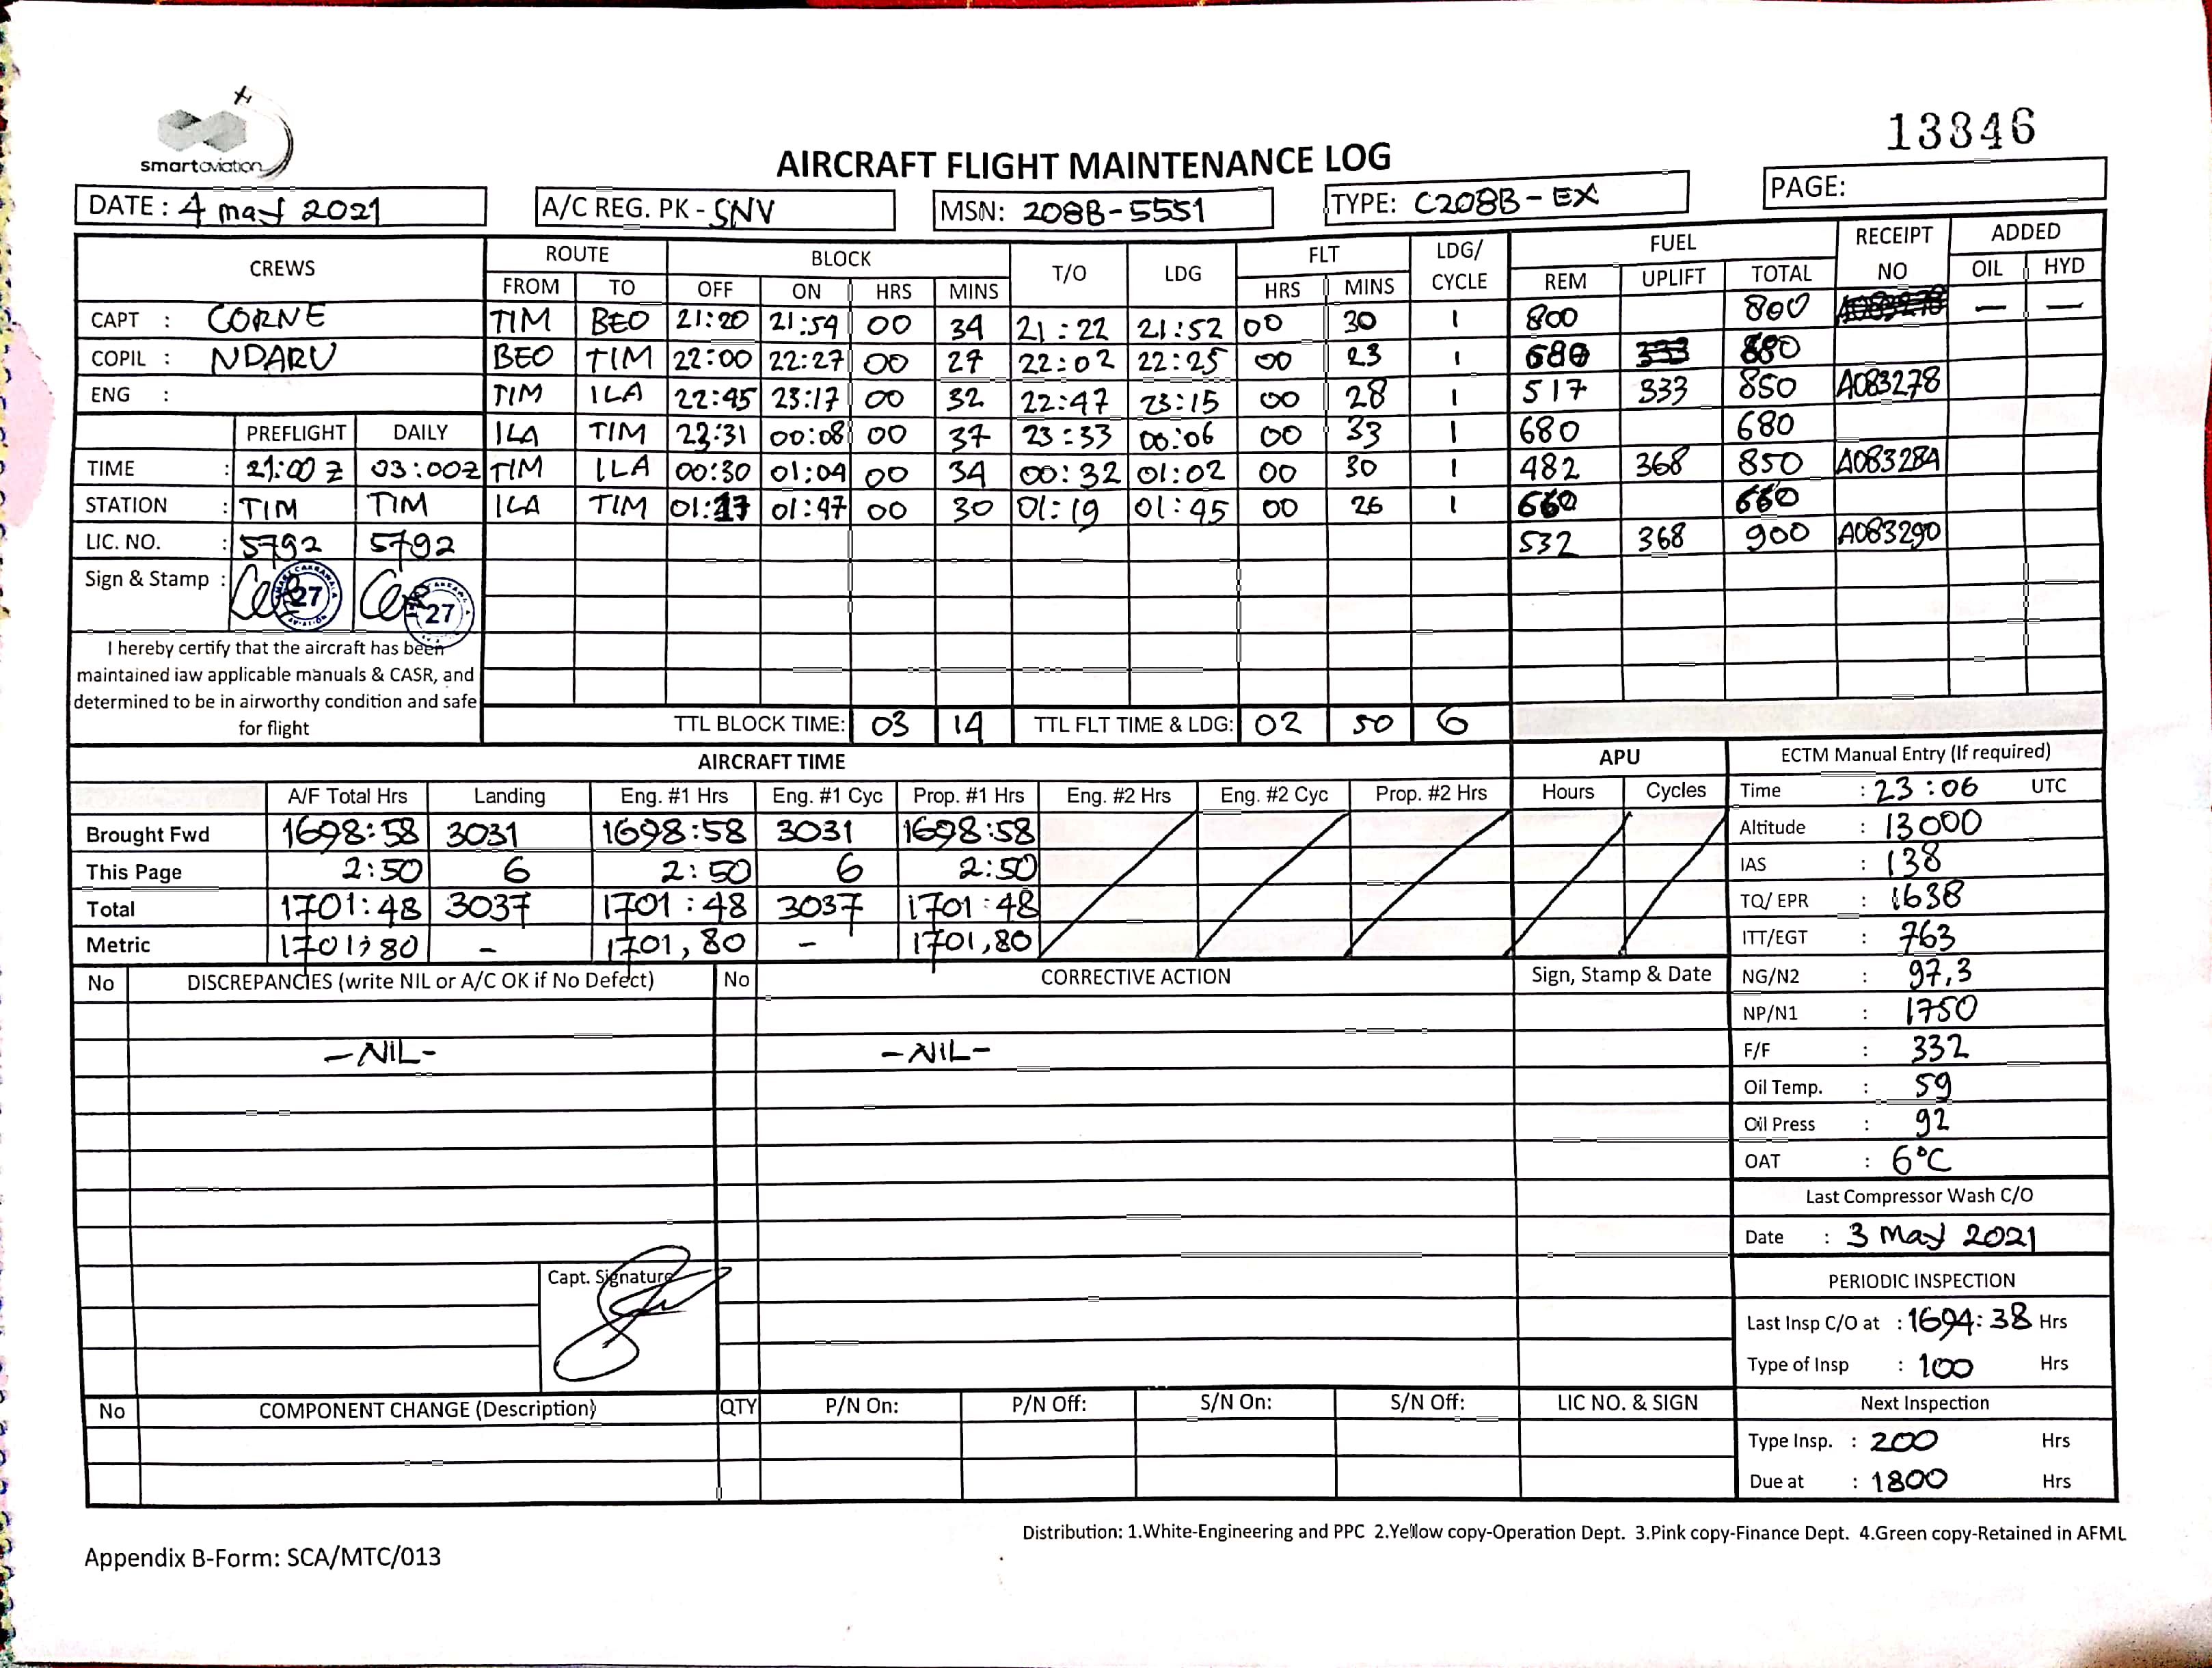 smartaviation
13846
AIRCRAFT FLIGHT MAINTENANCE LOG
DATE : 4 may 2021 A/C REG. PK - SNV MSN: 208B-5551 TYPE: C208B-EX PAGE:
CREWS ROUTE BLOCK T/O LDG FLT LDG/ CYCLE FUEL RECEIPT NO ADDED
FROM TO OFF ON HRS MINS HRS MINS REM UPLIFT TOTAL OIL HYD
CAPT : CORNE TIM BEO 21:20 21:54 00 34 21:22 21:52 00 30 1 800 800 — —
COPIL : NDARU BEO TIM 22:00 22:27 00 27 22:02 22:25 00 23 1 680 680
ENG : TIM ILA 22:45 23:17 00 32 22:47 23:15 00 28 1 517 333 850 A083278
PREFLIGHT DAILY ILA TIM 23:31 00:08 00 37 23:33 00:06 00 33 1 680 680
TIME : 21:00 Z 03:00Z TIM ILA 00:30 01:04 00 34 00:32 01:02 00 30 1 482 368 850 A083284
STATION : TIM TIM ILA TIM 01:17 01:47 00 30 01:19 01:45 00 26 1 660 660
LIC. NO. : 5792 5792 532 368 900 A083290
Sign & Stamp : 27 27
I hereby certify that the aircraft has been
maintained iaw applicable manuals & CASR, and
determined to be in airworthy condition and safe
for flight
TTL BLOCK TIME: 03 14 TTL FLT TIME & LDG: 02 50 6
AIRCRAFT TIME APU ECTM Manual Entry (If required)
A/F Total Hrs Landing Eng. #1 Hrs Eng. #1 Cyc Prop. #1 Hrs Eng. #2 Hrs Eng. #2 Cyc Prop. #2 Hrs Hours Cycles Time : 23:06 UTC
Brought Fwd 1698:58 3031 1698:58 3031 1698:58 Altitude : 13000
This Page 2:50 6 2:50 6 2:50 IAS : 138
Total 1701:48 3037 1701:48 3037 1701:48 TQ/ EPR : 1638
Metric 1701,80 - 1701,80 - 1701,80 ITT/EGT : 763
No DISCREPANCIES (write NIL or A/C OK if No Defect) No CORRECTIVE ACTION Sign, Stamp & Date NG/N2 : 97,3
NP/N1 : 1750
-NIL- -NIL- F/F : 332
Oil Temp. : 59
Oil Press : 92
OAT : 6°C
Last Compressor Wash C/O
Date : 3 May 2021
Capt. Signature
PERIODIC INSPECTION
Last Insp C/O at : 1694:38 Hrs
Type of Insp : 100 Hrs
No COMPONENT CHANGE (Description) QTY P/N On: P/N Off: S/N On: S/N Off: LIC NO. & SIGN Next Inspection
Type Insp. : 200 Hrs
Due at : 1800 Hrs
Distribution: 1.White-Engineering and PPC 2.Yellow copy-Operation Dept. 3.Pink copy-Finance Dept. 4.Green copy-Retained in AFML
Appendix B-Form: SCA/MTC/013